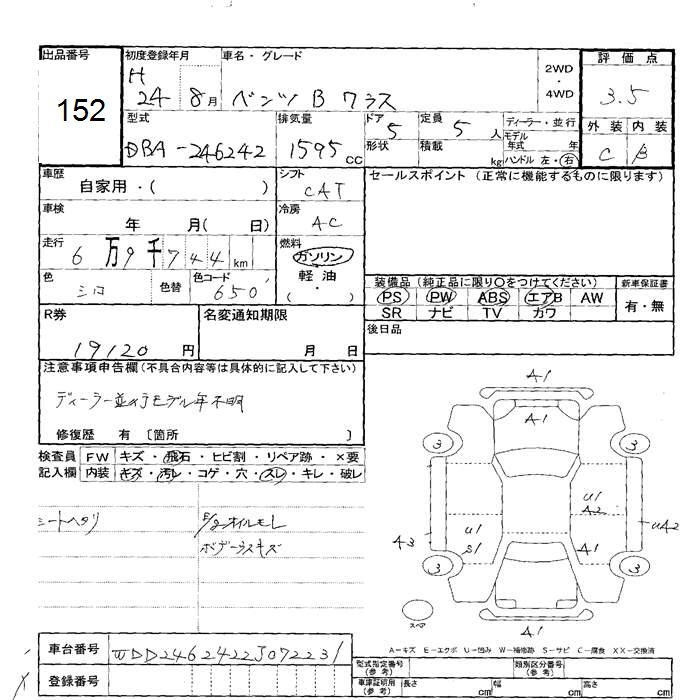 出品番号 初度登録年月 車名・グレード 評価点
152
H
24 8月 ベンツ B クラス
2WD
・
4WD
3.5
型式 排気量 ドア 定員 ディーラー・並行 外装 内装
DBA-246242 1595cc 5 5人 モデル年式 年
形状 積載 kg ハンドル 左・右
C B
車歴 自家用・( )
シフト CAT
セールスポイント (正常に機能するものに限ります)
車検 年 月( 日)
冷房 AC
走行 6万9千744km
燃料 ガソリン
軽油
( ・ )
色 シロ 色替 色コード 650
装備品 (純正品に限り○をつけてください) 新車保証書
PS PW ABS エアB AW 有・無
SR ナビ TV カワ
R券 19120円
名変通知期限 月 日
後日品
注意事項申告欄 (不具合内容等は具体的に記入して下さい)
ディーラー並行モデル年不明
修復歴 有 〔箇所 〕
検査員 FW キズ・飛石・ヒビ割・リペア跡・×要
記入欄 内装 キズ・汚レ・コゲ・穴・スレ・キレ・破レ
シートヘタリ
E/gオイルモレ
ボデーラスキズ
A1
A1
3 3
U1
A2
U1
S1
A3
UA2
A1
3 3
スペア
A1
A－キズ E－エクボ U－凹み W－補修跡 S－サビ C－腐食 XX－交換済
車台番号 WDD2462422J072231
登録番号
型式指定番号(参考) 類別区分番号(参考)
車庫証明用(参考) 長さ cm 幅 cm 高さ cm